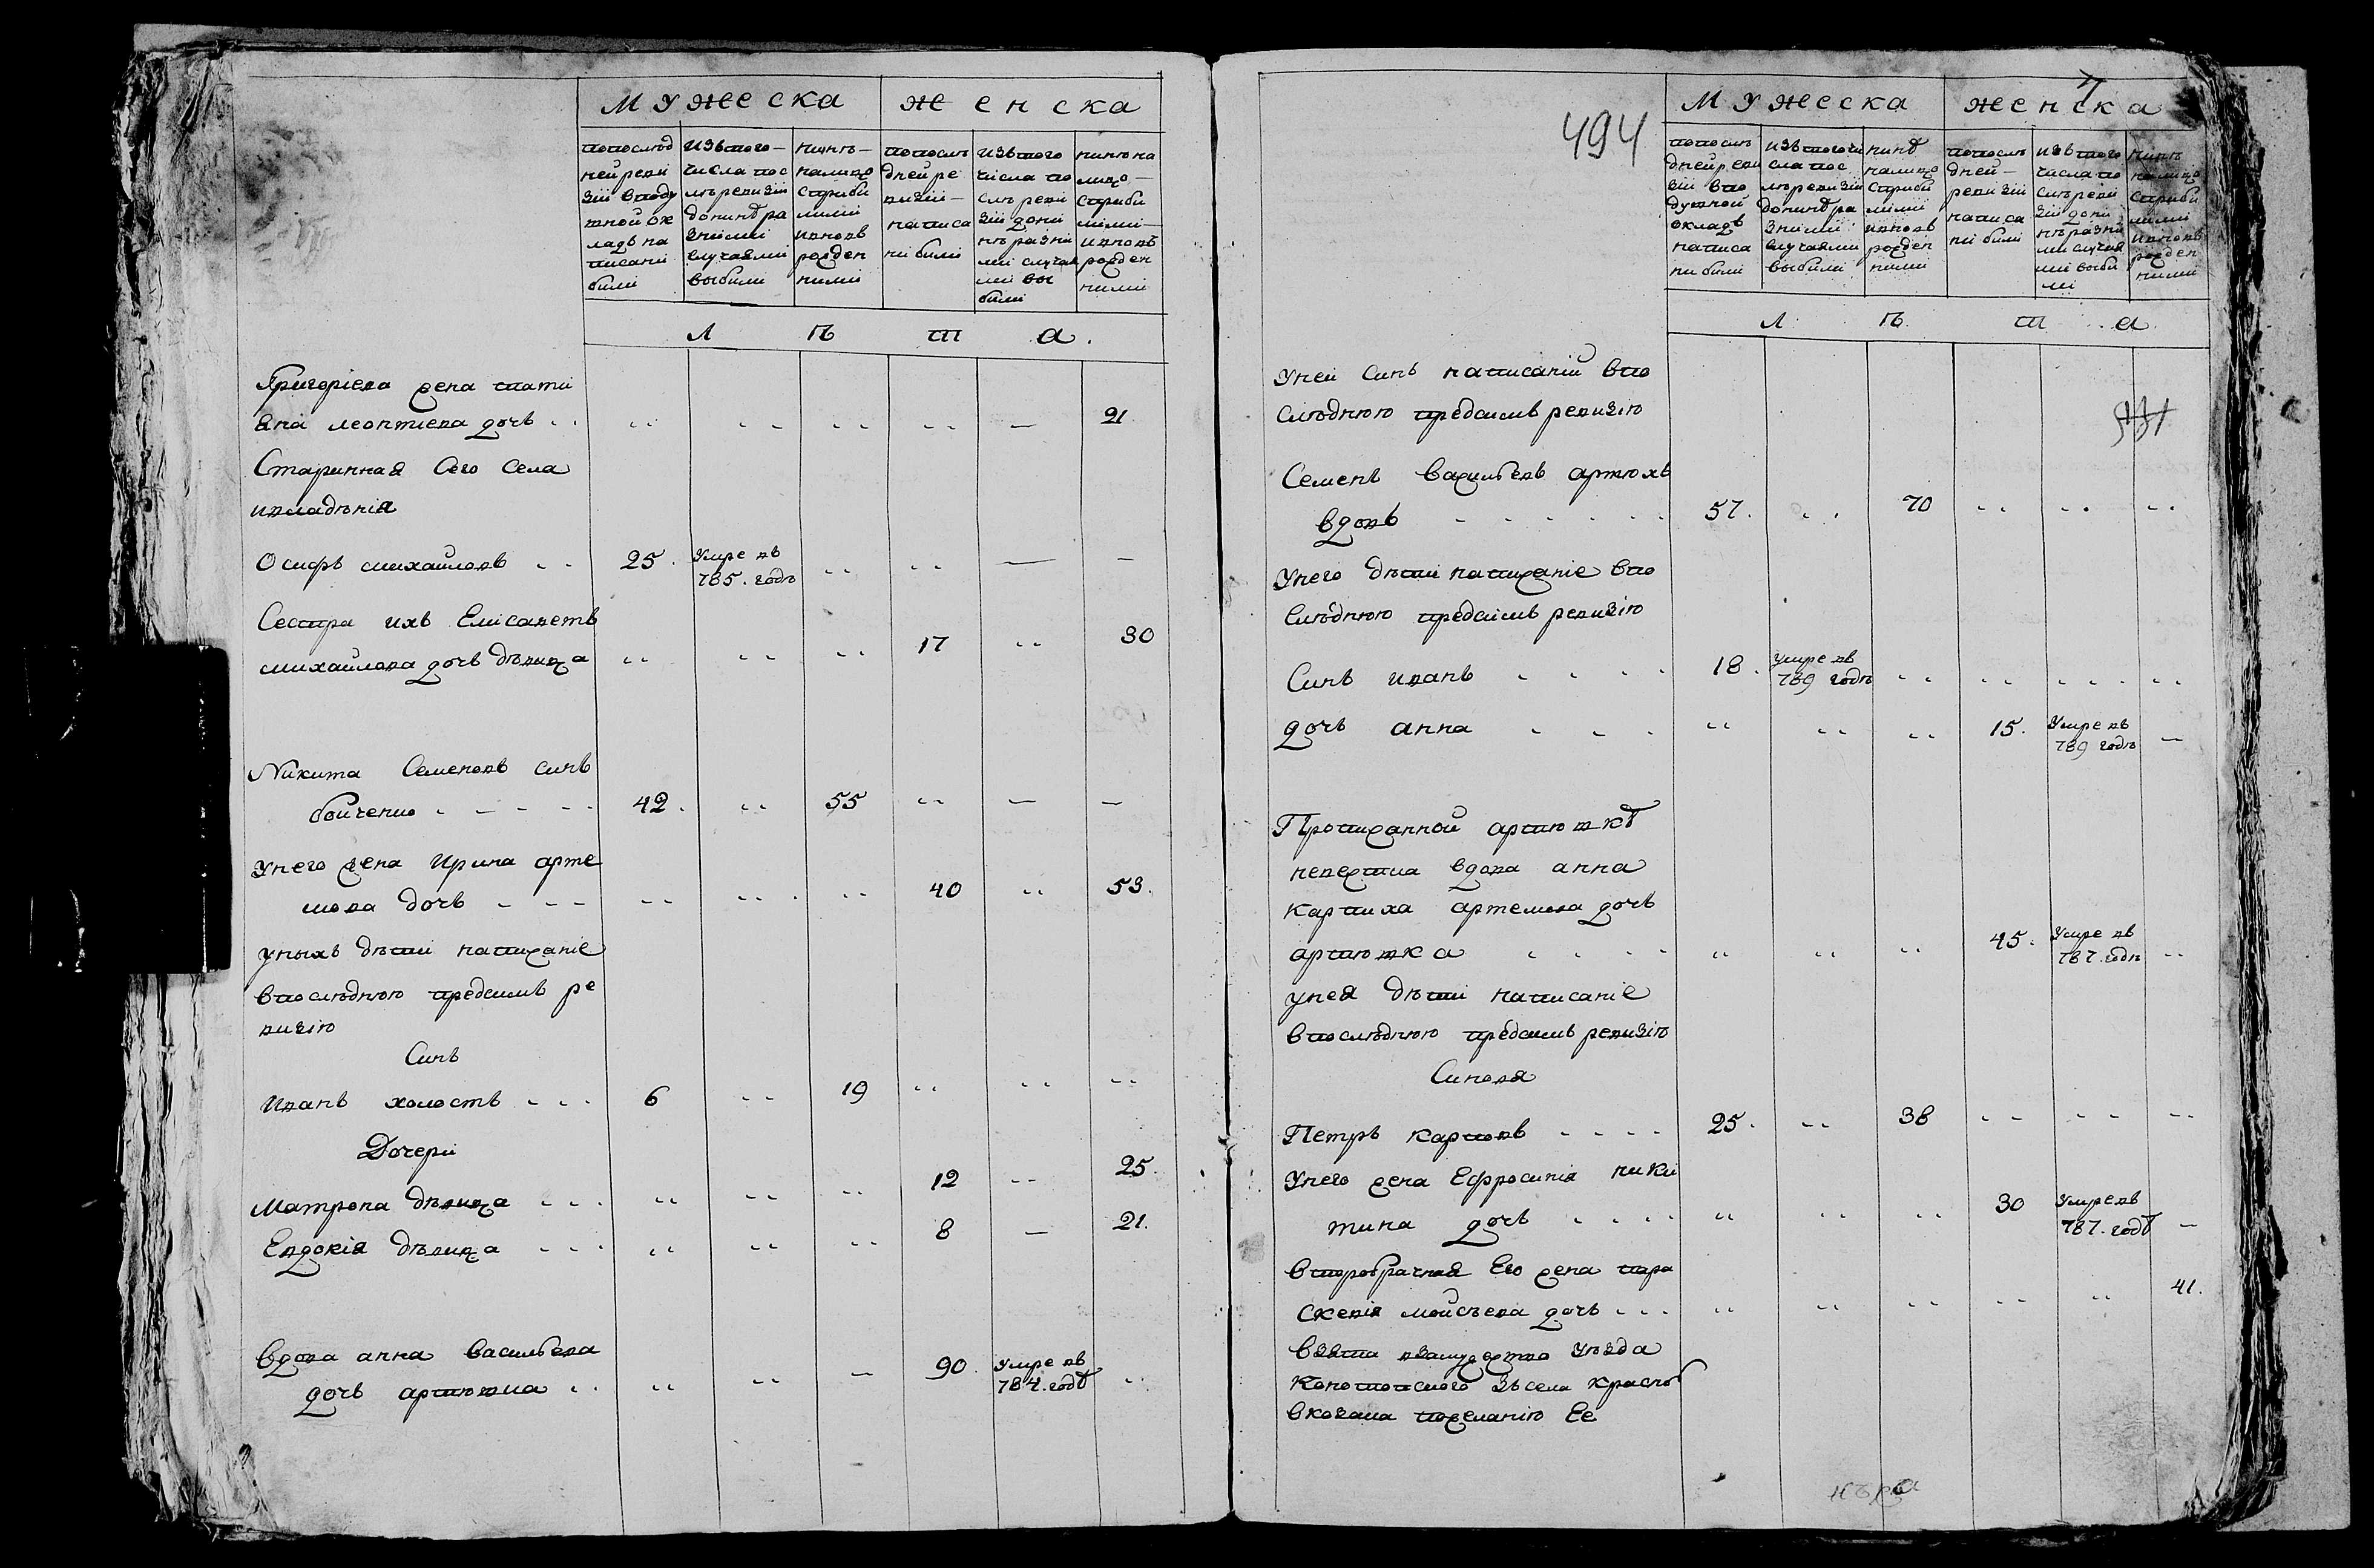 Мужеска Женска
попослѣд нейревизіи вподушной окладъ написани били
изътого числа послѣ ревизіи донинѣ разними случаями выбили
нинѣ налицо сприбилими ивновь рожденними
попослѣдней ревизіи написани били
изътого числа послѣ ревизіи донинѣ разними случаями выбили
нинѣ налицо сприбилими ивновь рожденними
Л ѣ т а.
Григоріева жена тати
яна леонтіева дочь 21
Старинная Сего Села
ивладѣнія
Осифъ михайловъ 25. Умре въ 785. годѣ
Сестра ихъ Елисаветъ
михайлова дочь дѣвица 17 30
Никита Семеновъ синъ
бойченко 42. 55
Унего жена Ирина арте
мова дочь 40 53.
унихъ дѣти написаніе
впослѣднюю предсимъ ре
визію
Синъ
Иванъ холостъ 6 19
Дочери
Матрона дѣвица 12 25.
Евдокія дѣвица 8 21.
Вдова анна Васильева
дочь артювха 90. Умре въ 784. годѣ
494
Мужеска Женска
попослѣдней ревизіи вподушной окладъ написани били
изътого числа послѣ ревизіи донинѣ разними случаями выбили
нинѣ налицо сприбилими ивновь рожденними
попослѣдней ревизіи написани били
изътого числа послѣ ревизіи донинѣ разними случаями выбили
нинѣ налицо сприбилими ивновь рожденними
Л ѣ т а.
Уней Синъ написаній впо
слѣднюю предсимъ ревизію
Семенъ Васильевъ артюхъ
вдовъ 57. 70
Унего дѣти написаніе впо
слѣднюю предсимъ ревизію
Синъ иванъ 18. Умре въ 789 годѣ
дочь анна 15. Умре въ 789 годѣ
Прописанной артювхѣ
невестка вдова анна
карпиха артемова дочь
артювха 45. Умре въ 787. годѣ
унея дѣти написаніе
впослѣднюю предсимъ ревизію
Синовя
Петръ карповъ 25. 38
Унего жена Ефросинія ники
тина дочь 30 Умре въ 787. годѣ
второбрачная Его жена пара
скевія мойсѣева дочь 41.
Взята взамужество уѣзда
Конотопского зъ села красно
вкозака пожеланію Ее